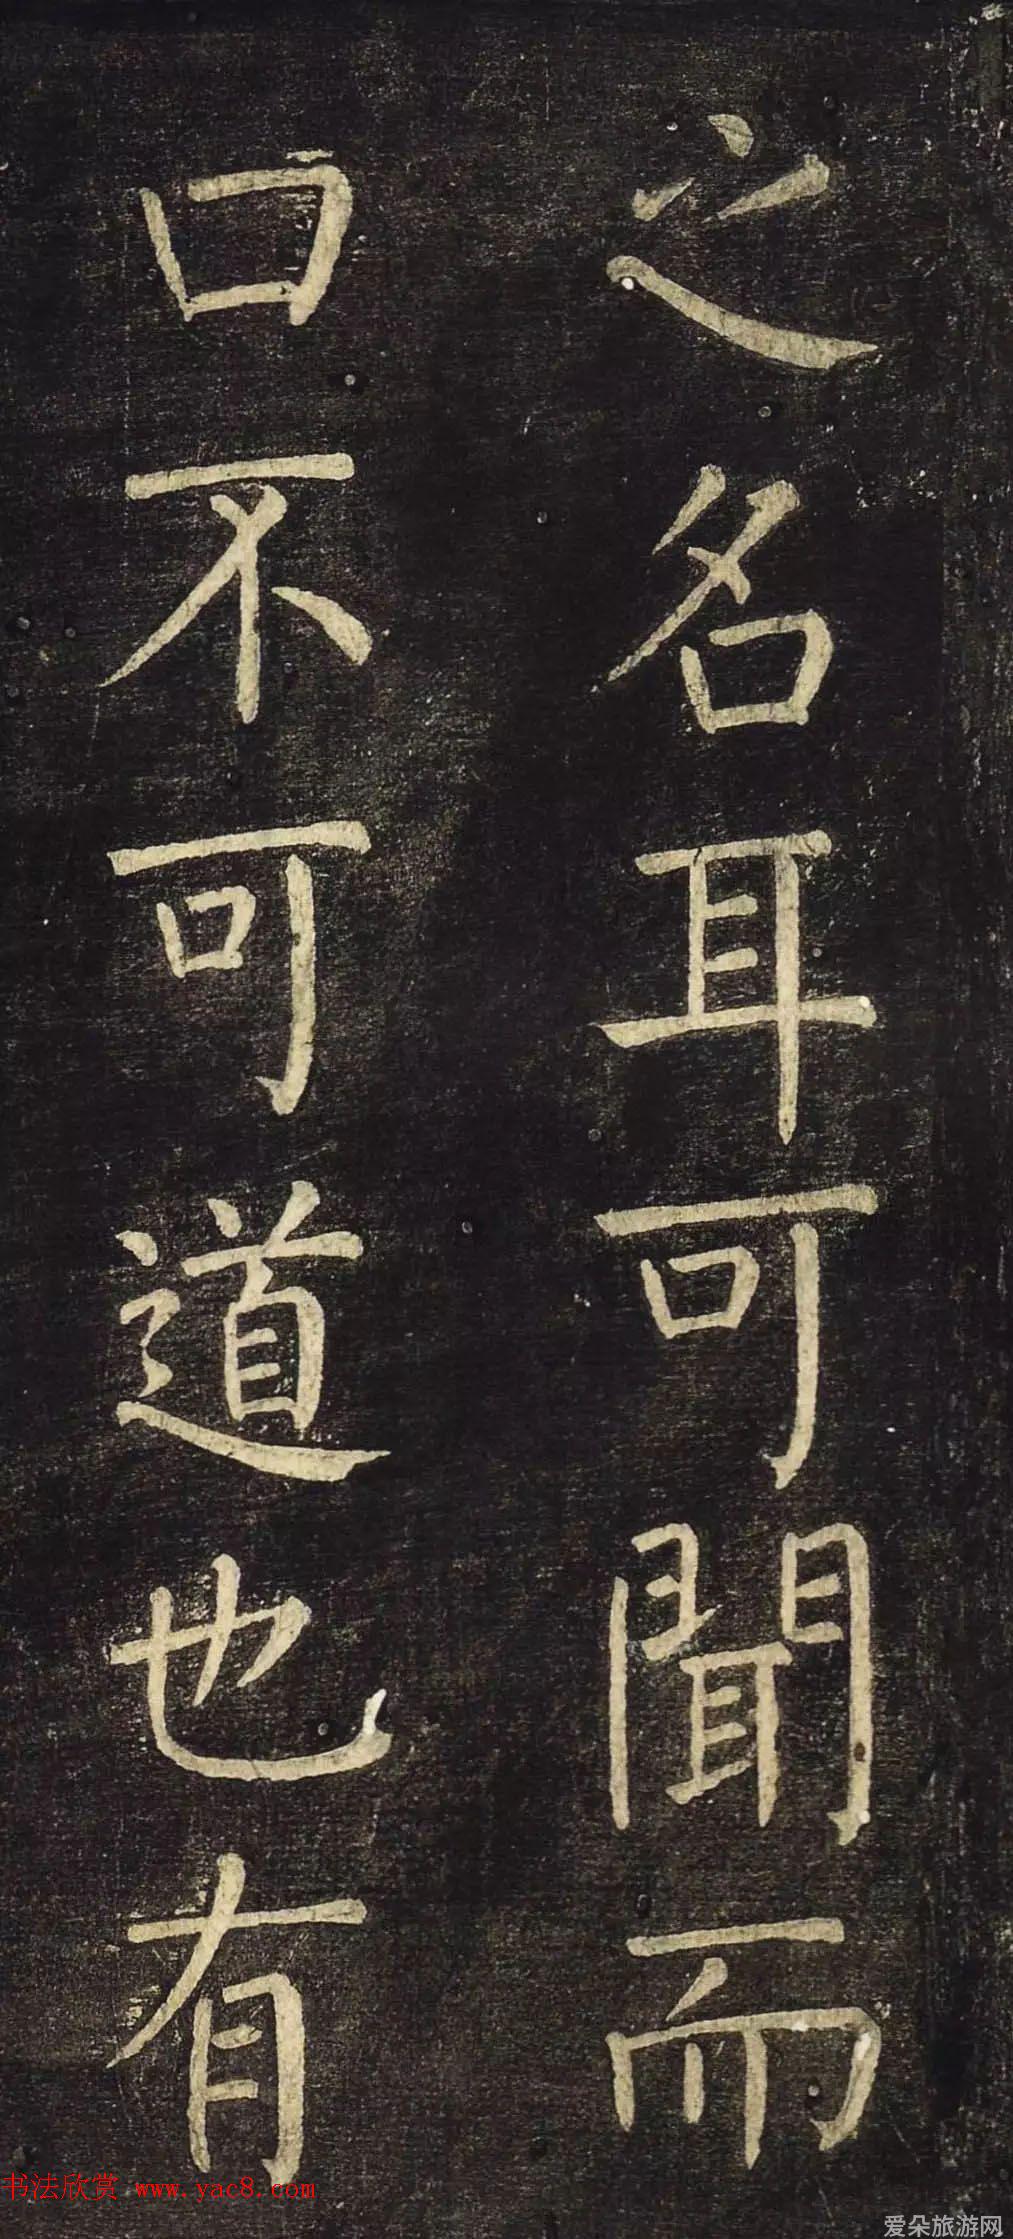 之名耳可聞而
口不可道也有
书法欣赏 www.yac8.com
爱朵旅游网